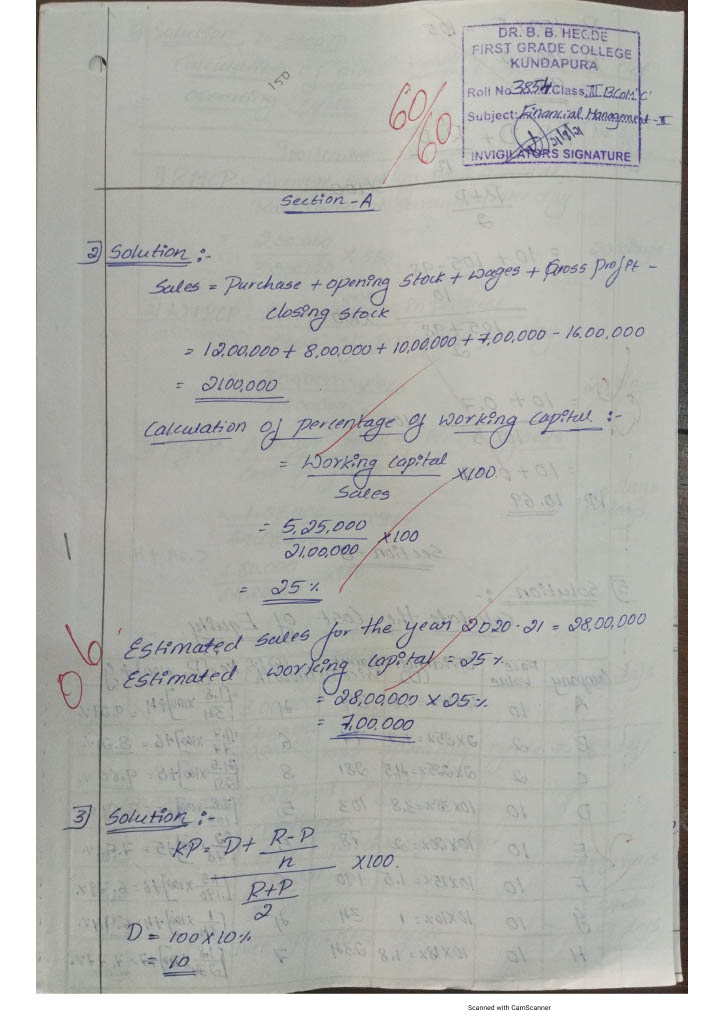 DR. B. B. HEGDE
FIRST GRADE COLLEGE
KUNDAPURA
Roll No. 3854 Class. III BCOM 'C'
Subject: Financial Management - II
21/8/21
INVIGILATORS SIGNATURE
150
60/60
Section - A
2] Solution :-
Sales = Purchase + opening stock + wages + Gross Profit -
closing stock
= 12,00,000 + 8,00,000 + 10,00,000 + 7,00,000 - 16,00,000
= 2100,000
Calculation of percentage of working capital :-
= Working capital / Sales X100
= 5,25,000 / 21,00,000 X100
= 25%
06
Estimated sales for the year 2020-21 = 28,00,000
Estimated working capital = 25%
= 28,00,000 X 25%
= 7,00,000
3] Solution :-
KP = D + R-P / n
X100.
R+P / 2
D = 100 X 10%
= 10
Scanned with CamScanner